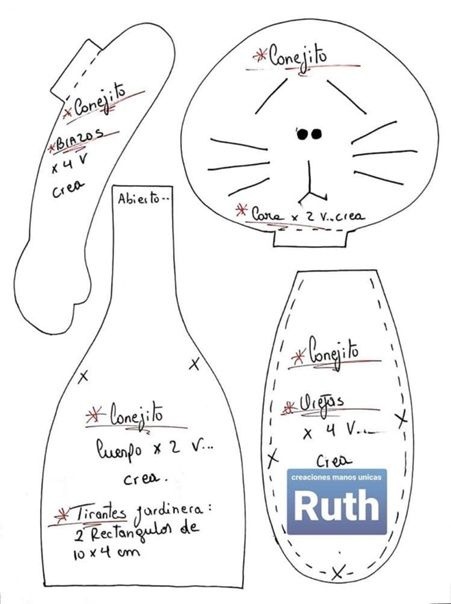 * Conejito
* Brazos
x 4 V
crea
* Conejito
* Cara x 2 V..crea
Abierto..
* Conejito
Cuerpo x 2 V...
crea.
* Tirantes jardinera:
2 Rectangulos de
10 x 4 cm
* Conejito
* Orejas
x 4 V...
crea
creaciones manos unicas
Ruth